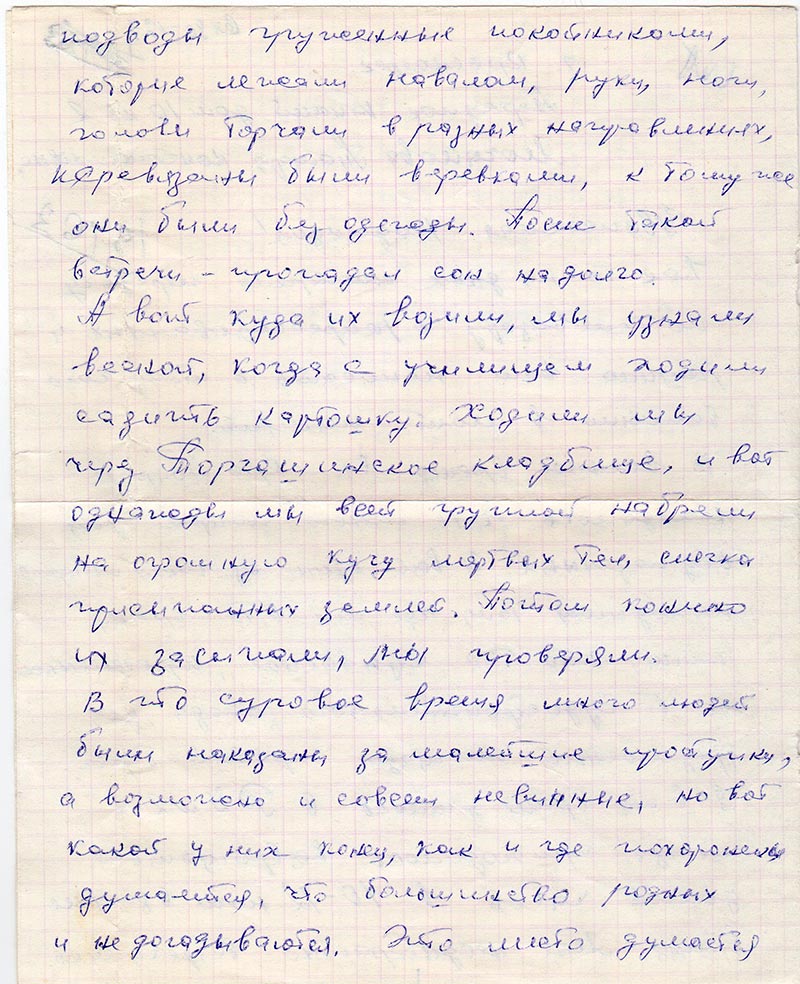 подводы груженные покойниками,
которые лежали навалом, руки, ноги,
головы торчали в разных направлениях,
перевязаны были веревками, к тому же
они были без одежды. После такой
встречи – пропадал сон надолго.
А вот куда их возили, мы узнали
весной, когда с училищем ходили
садить картошку. Ходили мы
через Торгашинское кладбище, и вот
однажды мы всей группой набрели
на огромную кучу мертвых тел, слегка
присыпанных землей. Потом конечно
их засыпали, мы проверяли.
В это суровое время много людей
были наказаны за малейшие проступки,
а возможно и совсем невинные, но вот
какой у них конец, как и где похоронены
думается, что большинство родных
и не догадываются. Это место думается